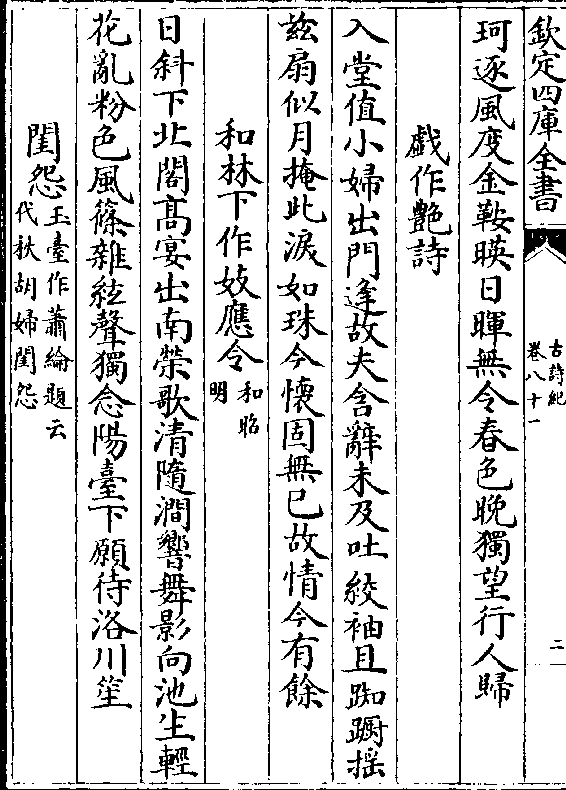 欽定四庫全書
古詩紀
卷八十一
二
珂逐風度金鞍暎日暉無令春色晚獨望行人歸
戲作艷詩
入堂值小婦出門逢故夫含辭未及吐絞袖且踟蹰揺
兹扇似月掩此淚如珠今懷固無已故情今有餘
和林下作妓應令和昭
明
日斜下北閣髙宴出南榮歌清隨澗響舞影向池生輕
花亂粉色風篠雜絃聲獨念陽臺下願待洛川笙
閨怨玉臺作蕭綸題云
代秋胡婦閨怨